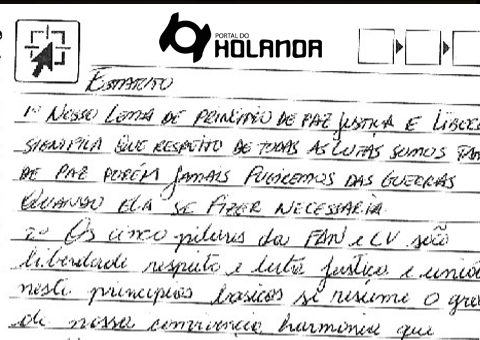 PORTAL DO
HOLANDA
ESTATUTO
1º NOSSO LEMA DE PRINCIPIO DE PAZ JUSTIÇA E LIBER
SIGNIFICA QUE RESPEITO DE TODAS AS LUTAS SOMOS
DE PAZ PORÉM JAMAIS FUGIREMOS DAS GUERRAS
QUANDO ELA SE FIZER NECESSARIA.
2º Os cinco pilares da FAN e CV são
liberdade respeito e luta justiça e união
neste principios basicos si resume o
de nossa convivencia harmonica que